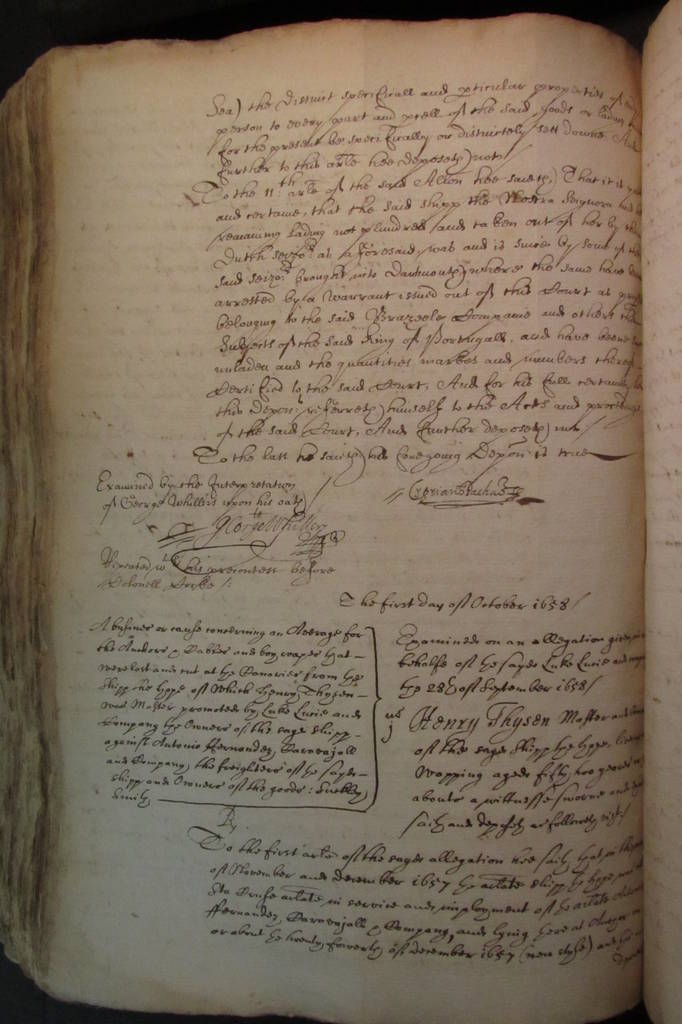 Sea) the distinct specificall and perticular properties of
person to every part and prcell of the said goods or lading
for the present be specifically or distinctely sett downe And
further to this arle hee deposeth not
To the 11th arle of the said Allon hee saieth, That it is
and certaine, that the said shipp the Nostra Signora
remaining lading not plundred and taken out of her by
Dutch seizors as aforesaid, was and is since by some of
said seizors brought into Dartmouth, where the same have
arrested by a Warrant issued out of this Court as
belonging to the said Brazeele Companie and others the
Subjects of the said King of Portugall, and have beene
unladen and the quantities markes and numbers thereof
Certified to the said Court, And for his full certaine
this depont referreth himself to the Acts and
of the said Court, And further deposeth not
To the last he saieth his foregoing Depon is true
Examined by the Interpretation
of George Whillers upon his oath
George Whiller
Repeated wth his precontest before
Colonell Cocke
The first day of October 1658
A busines or cause concerning an Average for
the Anchors Cables and that
were lost and cut at the Canaries from the
shipp the hope of which Henry Thysen
was Master promoted by Luke Lucie and
Company the Owners of the sayd shipp
against Antonio Fernandez Caravajall
and Company the freighters of the sayd
shipp and Owners of the goods: Suckley
Smith
Examined on an allegation given
behalfe of the sayd Luke Lucie and
the 28th of September 1658
Henry Thysen Master
of the sayd shipp the hope,
Wapping aged fifty two yeares
abouts a wittnesse sworne and
saith and deposeth as followeth vizt
Rp
To the first arle of the sayd allegation hee saith that in
of November and december 1657 the arlate shipp the hope,
Sta Cruse arlate in service and imployment of the arlate
Fernandez, Caravajall & Company, and lying there at Anchor
or about the twenty fowerth of december 1657 (new style) and